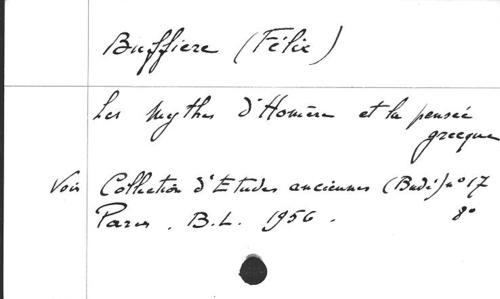 Buffiere (Félix)
Les Mythes d'Homère et la pensée
grecque
Voir Collection d'Etudes anciennes (Budé) n° 17
Paris . B.L. 1956 . 8°